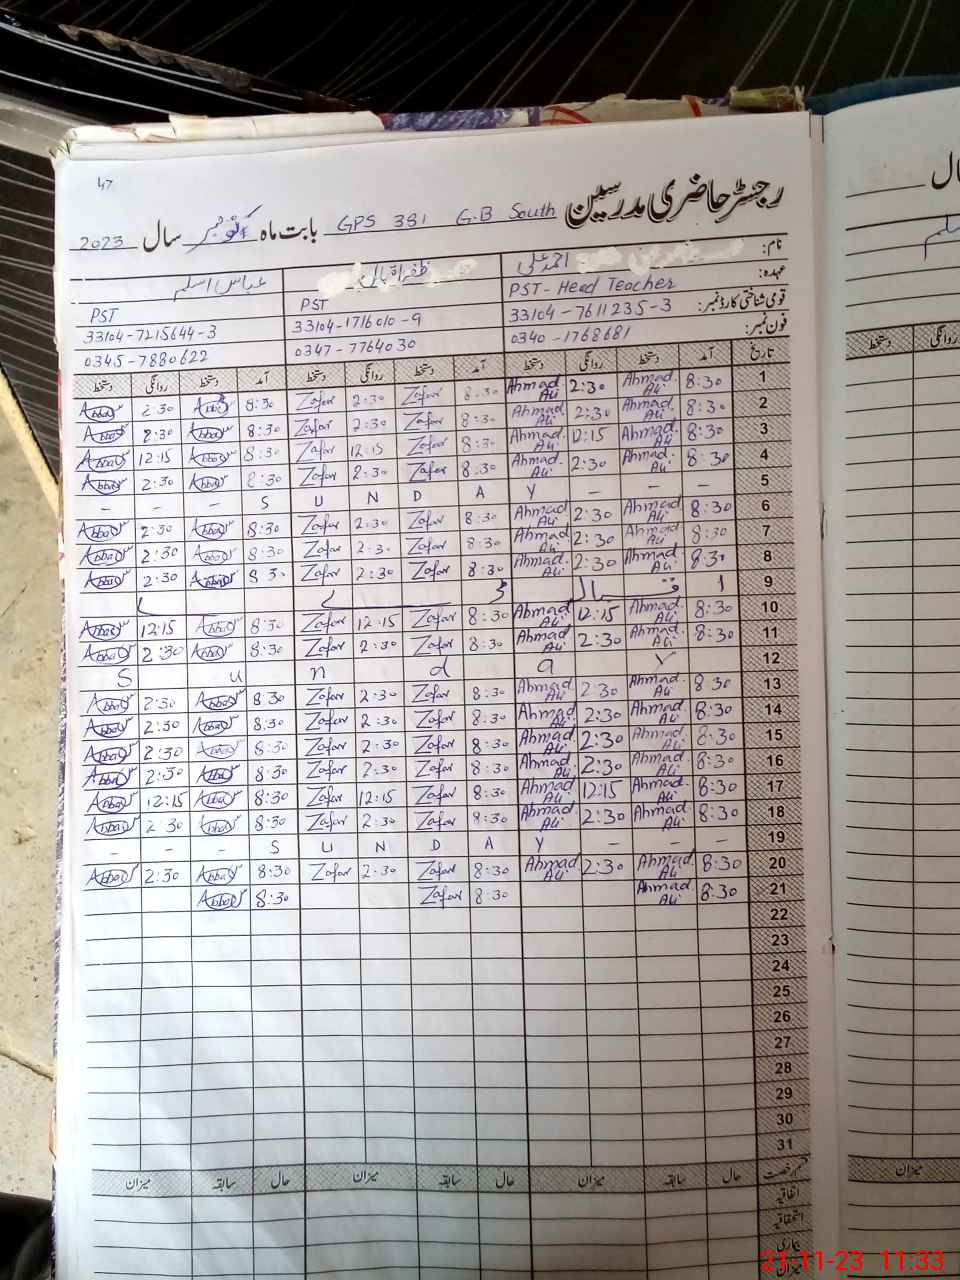 47
رجسٹر حاضری مدرسین GPS 381 G.B South بابت ماہ سال 2023
نام: احمد علی ظفر اقبال عباس اسلم
عہدہ: PST-Head Teacher PST PST
قومی شناختی کارڈ نمبر: 33104-7611235-3 33104-1716010-9 33104-7215644-3
فون نمبر: 0340-1768681 0347-7764030 0345-7880622
تاریخ آمد دستخط روانگی دستخط آمد دستخط روانگی دستخط آمد دستخط روانگی دستخط
1 8:30 Ahmad Ali 2:30 Ahmad Ali 8:30 Zafar 2:30 Zafar 8:30 Abbas 2:30 Abbas
2 8:30 Ahmad Ali 2:30 Ahmad Ali 8:30 Zafar 2:30 Zafar 8:30 Abbas 2:30 Abbas
3 8:30 Ahmad Ali 12:15 Ahmad Ali 8:30 Zafar 12:15 Zafar 8:30 Abbas 12:15 Abbas
4 8:30 Ahmad Ali 2:30 Ahmad Ali 8:30 Zafar 2:30 Zafar 8:30 Abbas 2:30 Abbas
5 - - - S U N D A Y - -
6 8:30 Ahmad Ali 2:30 Ahmad Ali 8:30 Zafar 2:30 Zafar 8:30 Abbas 2:30 Abbas
7 8:30 Ahmad Ali 2:30 Ahmad Ali 8:30 Zafar 2:30 Zafar 8:30 Abbas 2:30 Abbas
8 8:30 Ahmad Ali 2:30 Ahmad Ali 8:30 Zafar 2:30 Zafar 8:30 Abbas 2:30 Abbas
9 اقبال ڈے
10 8:30 Ahmad Ali 12:15 Ahmad Ali 8:30 Zafar 12:15 Zafar 8:30 Abbas 12:15 Abbas
11 8:30 Ahmad Ali 2:30 Ahmad Ali 8:30 Zafar 2:30 Zafar 8:30 Abbas 2:30 Abbas
12 S u n d a y
13 8:30 Ahmad Ali 2:30 Ahmad Ali 8:30 Zafar 2:30 Zafar 8:30 Abbas 2:30 Abbas
14 8:30 Ahmad Ali 2:30 Ahmad Ali 8:30 Zafar 2:30 Zafar 8:30 Abbas 2:30 Abbas
15 8:30 Ahmad Ali 2:30 Ahmad Ali 8:30 Zafar 2:30 Zafar 8:30 Abbas 2:30 Abbas
16 8:30 Ahmad Ali 2:30 Ahmad Ali 8:30 Zafar 2:30 Zafar 8:30 Abbas 2:30 Abbas
17 8:30 Ahmad Ali 12:15 Ahmad Ali 8:30 Zafar 12:15 Zafar 8:30 Abbas 12:15 Abbas
18 8:30 Ahmad Ali 2:30 Ahmad Ali 8:30 Zafar 2:30 Zafar 8:30 Abbas 2:30 Abbas
19 - - - S U N D A Y - - -
20 8:30 Ahmad Ali 2:30 Ahmad Ali 8:30 Zafar 2:30 Zafar 8:30 Abbas 2:30 Abbas
21 8:30 Ahmad Ali 8:30 Zafar 8:30 Abbas
22
23
24
25
26
27
28
29
30
31
قسم رخصت حال سابقہ میزان حال سابقہ میزان حال سابقہ میزان
اتفاقیہ
استحقاقیہ
بیماری
میزان
روانگی دستخط
میزان
21-11-23 11:33